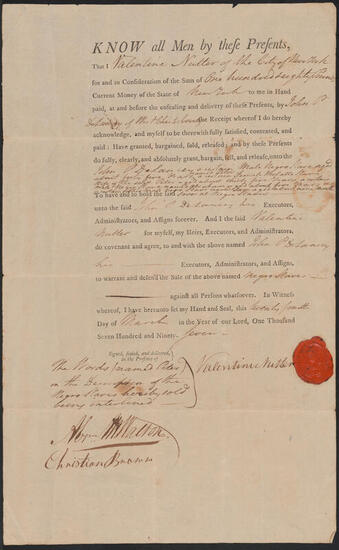 KNOW all Men by theſe Preſents,
That I Valentine Nutter of the City of New York
for and in Conſideration of the Sum of One hundred & eighty Pounds
Current Money of the State of New York to me in Hand
paid, at and before the enſealing and delivery of theſe Preſents, by John P
DeLancey of the the Receipt whereof I do hereby
acknowledge, and myſelf to be therewith fully ſatisfied, contented, and
paid: Have granted, bargained, ſold, releaſed; and by theſe Preſents
do fully, clearly, and abſolutely grant, bargain, ſell, and releaſe, unto the
John P DeLancey Male Negro
To have and to hold the ſaid
unto the ſaid John P DeLancey his Executors,
Adminiſtrators, and Aſſigns forever. And I the ſaid Valentine
Nutter for myſelf, my Heirs, Executors, and Adminiſtrators,
do covenant and agree, to and with the above named John P DeLancey
his Executors, Adminiſtrators, and Aſſigns,
to warrant and defend the Sale of the above named Negro Slaves
againſt all Perſons whatſoever. In Witneſs
whereof, I have hereunto ſet my Hand and Seal, this twenty fourth
Day of March in the Year of our Lord, One Thouſand
Seven Hundred and Ninety-Seven
Signed, ſealed, and delivered,
in the Preſence of
The Words
in the Description of the
Negro Slaves hereby sold
being interlined
Valentine Nutter
Walton
Christian Brown